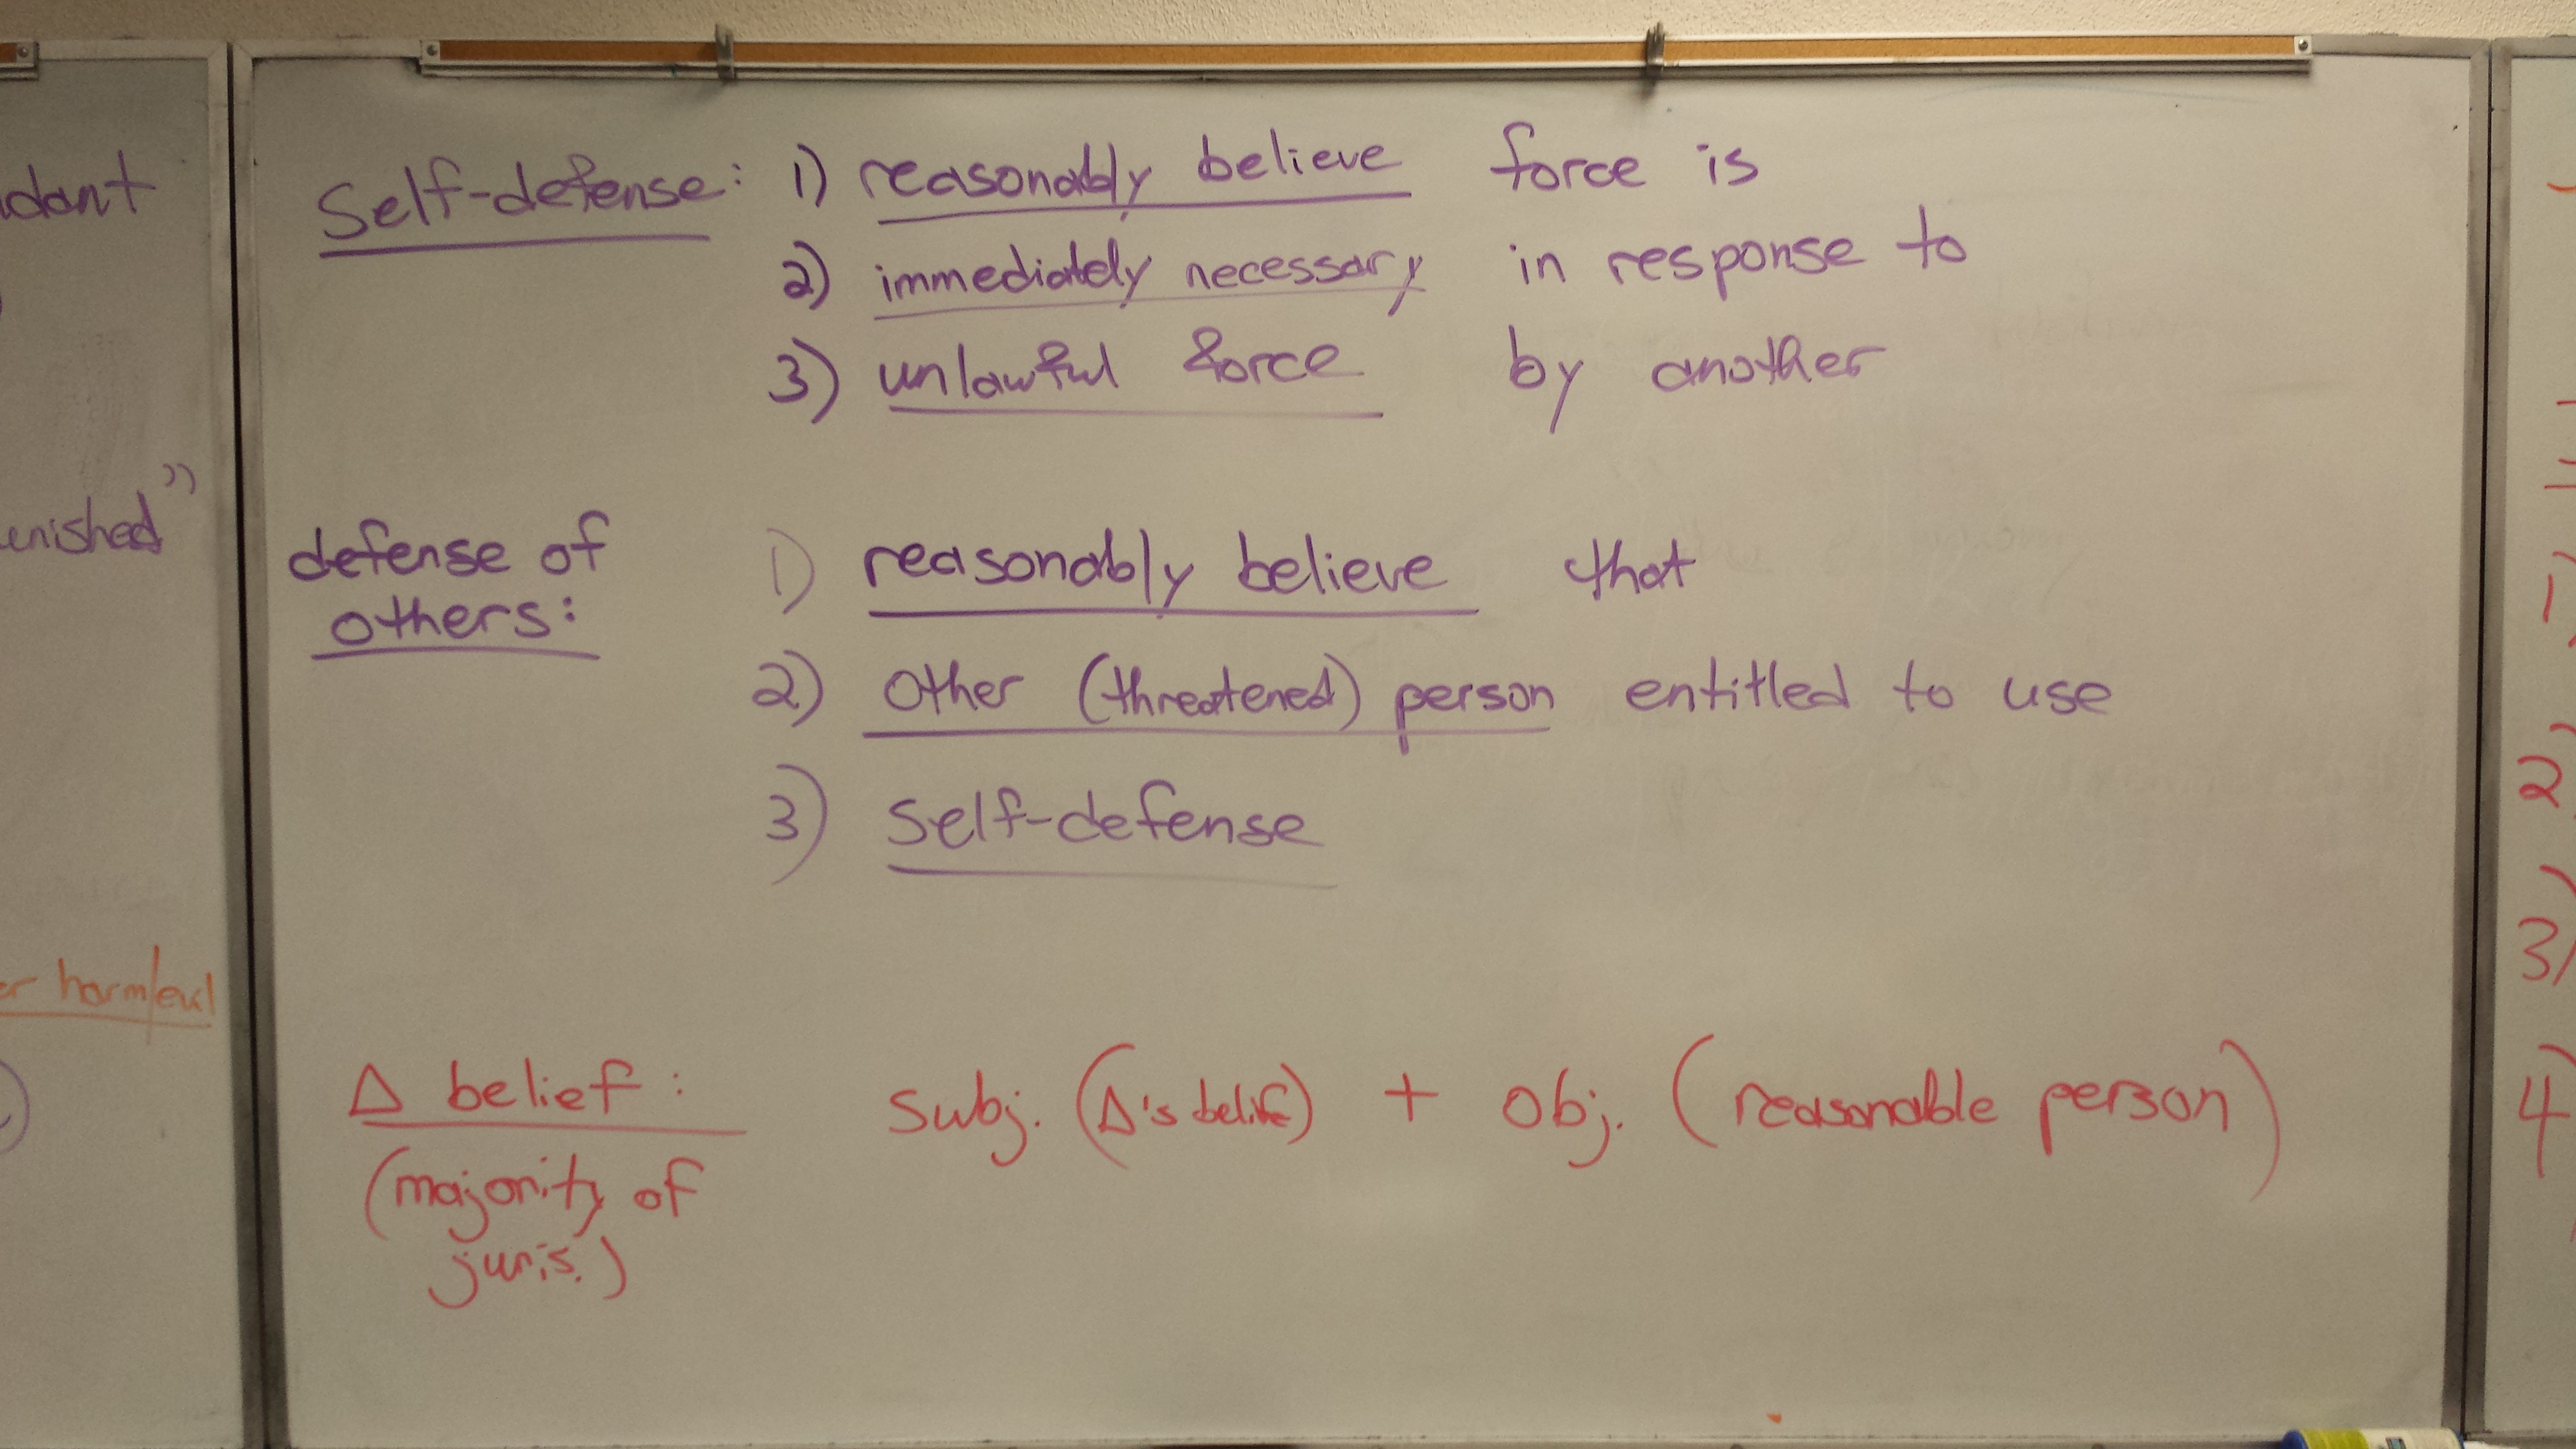 dant
enished"
er harm/evil
Self-defense: 1) reasonably believe force is
2) immediately necessary in response to
3) unlawful force by another
defense of
others:
1) reasonably believe that
2) other (threatened) person entitled to use
3) self-defense
Δ belief: subj. (Δ's belief) + obj. (reasonable person)
(majority of
juris.)
1)
2)
3)
4)